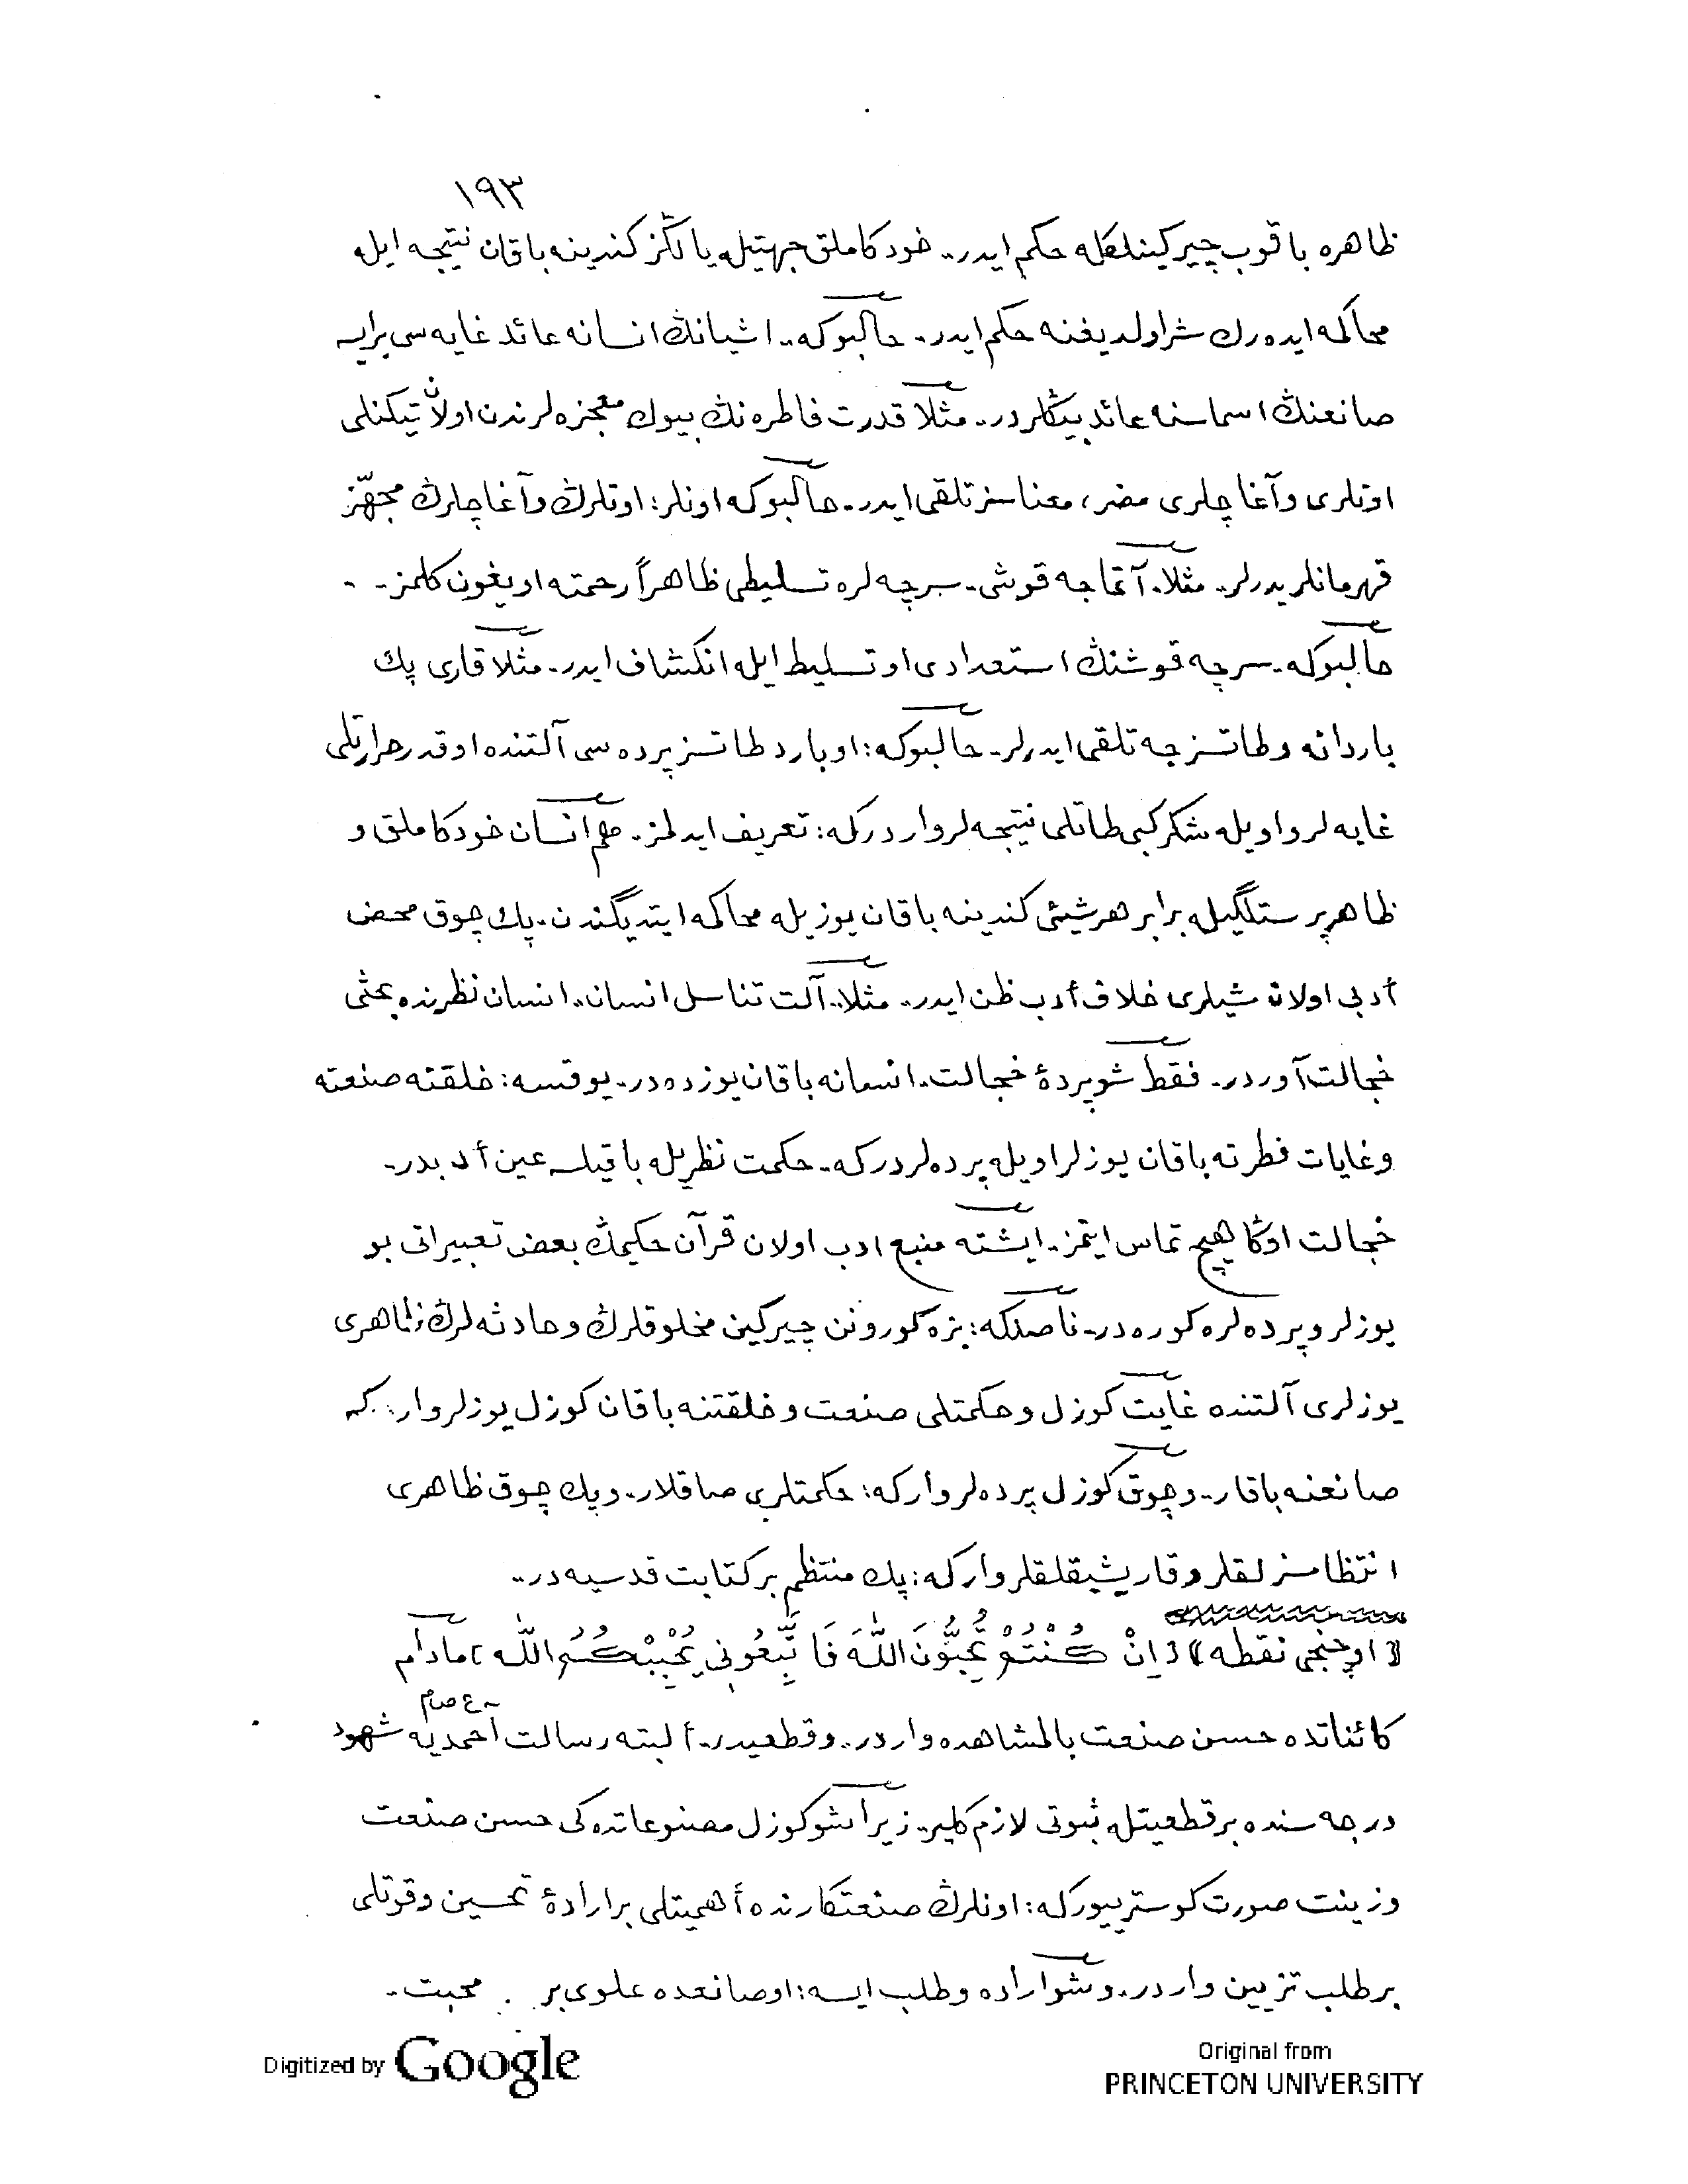 ١٩٣
ظاهره باقوب چيركينلكله حكم ايدر.. خودكاملق جهتيله يالڭز كندينه باقان نتيجه ايله
محاكمه ايده‌رك شر اولديغنه حكم ايدر. حالبوكه.. اشيانڭ انسانه عائد غايه‌سى بر ايسه
صانعنڭ اسماسنه عائد بيڭلردر.. مثلا قدرت فاطره‌نڭ بيوك معجزه‌لرندن اولان تيكنلى
اوتلرى وآغاچلرى مضر، معناسز تلقى ايدر. حالبوكه اونلر: اوتلرڭ وآغاچلرڭ مجهّز
قهرمانلريدرلر.. مثلا. آتماجه قوشى. سرچه‌لره تسليطى ظاهراً رحمته اويغون كلمز..
حالبوكه. سرچه قوشنڭ استعدادى او تسليط ايله انكشاف ايدر. مثلا قارى پك
باردانه وطاتسزجه تلقى ايدرلر. حالبوكه: او بارد طاتسز پرده‌سى آلتنده او قدر حرارتلى
غايه‌لر واويله شكر كبى طاتلى نتيجه‌لر واردركه: تعريف ايدلمز. هم انسان خودكاملق و
ظاهرپرستلگيله برابر هر شيئى كندينه باقان يوزيله محاكمه ايتديگندن. پك چوق محض
أدبى اولان شيلرى خلاف أدب ظن ايدر.. مثلا.. آلت تناسل انسان.. انسان نظرنده بحثى
خجالت‌آوردر. فقط شو پردهٔ خجالت. انسانه باقان يوزده‌در. يوقسه: خلقته صنعته
وغايات فطرته باقان يوزلر اويله پرده‌لردركه. حكمت نظريله باقيلسه عين أدبدر.
خجالت اوڭا هيچ تماس ايتمز. ايشته منبع ادب اولان قرآن حكيمڭ بعض تعبيراتى بو
يوزلر وپرده‌لره كوره‌در. ناصلكه: بزه كورونن چيركين مخلوقلرڭ وحادثه‌لرڭ ظاهرى
يوزلرى آلتنده غايت كوزل وحكمتلى صنعت وخلقتنه باقان كوزل يوزلر وار: كه
صانعنه باقار.. وچوق كوزل پرده‌لر واركه: حكمتلرى صاقلار.. وپك چوق ظاهرى
انتظامسزلقلر وقاريشيقلقلر واركه: پك منتظم بر كتابت قدسيه‌در..
﴿اوچنجى نقطه﴾ ﴿اِنْ كُنْتُمْ تُحِبُّونَ اللّٰهَ فَاتَّبِعُونِى يُحْبِبْكُمُ اللّٰه﴾ مادام
كائناتده حسن صنعت بالمشاهده واردر.. وقطعيدر. ألبته رسالت أحمديه ع‌ص‌م شهود
درجه‌سنده بر قطعيتله ثبوتى لازم كلير. زيرا شو كوزل مصنوعاتده‌كى حسن صنعت
وزينت صورت كوستريوركه: اونلرڭ صنعتكارنده أهميتلى بر ارادهٔ تحسين وقوتلى
بر طلب تزيين واردر. وشو اراده وطلب ايسه: او صانعده علوى بر محبت.
Digitized by Google
Original from
PRINCETON UNIVERSITY